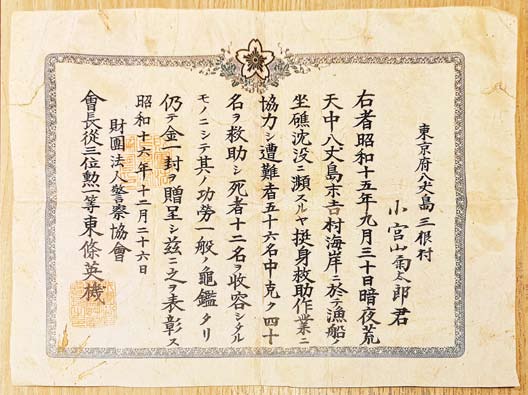 東京府八丈島三根村
小宮山菊太郎君
右者昭和十五年九月三十日暗夜荒
天中八丈島末吉村海岸ニ於テ漁船ノ
坐礁沈没ニ瀕スルヤ挺身救助作業ニ
協力シ遭難者五十六名中克ク四十
名ヲ救助シ死者十二名ヲ收容シタル
モノニシテ其ノ功労一般ノ龜鑑タリ
仍テ金一封ヲ贈呈シ茲ニ之ヲ表彰ス
昭和十六年十二月二十六日
財團法人警察協會
會長從三位勲一等東條英機